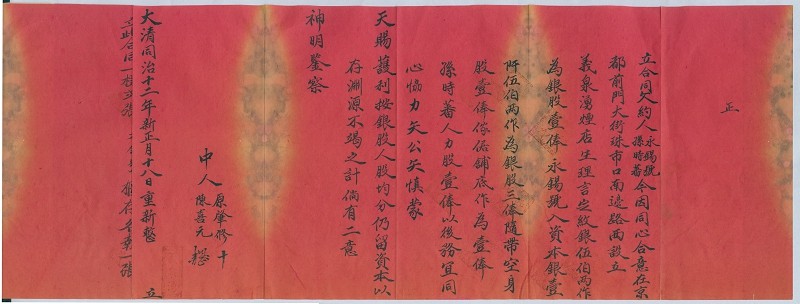 正
立合同文約人永錫號
孫時蕃
今因同心合意在京
都前門大街珠市口南邊路西設立
義泉湧煙店生理言定紋銀伍伯兩作
為銀股壹俸永錫號入資本銀壹
阡伍伯兩作為銀股三俸隨帶空身
股壹俸傢俬鋪底作為壹俸
孫時蕃人力股壹俸以後務宜同
心協力矢公矢慎蒙
天賜護利按銀股人股均分仍留資本以
存淵源不竭之計倘有二意
神明鑒察
中人
原肇修十
陳喜元
大清同治十二年新正月十八日重新整
立